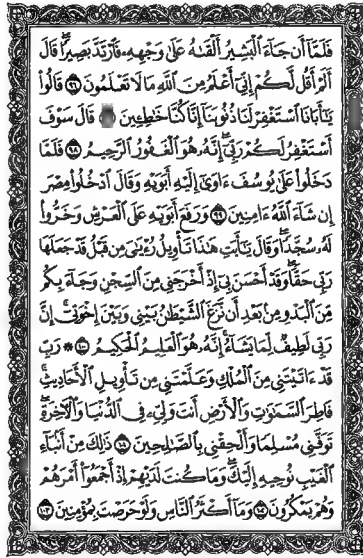 فَلَمَّآ أَن جَآءَ ٱلْبَشِيرُ أَلْقَىٰهُ عَلَىٰ وَجْهِهِۦ فَٱرْتَدَّ بَصِيرًا ۖ قَالَ
أَلَمْ أَقُل لَّكُمْ إِنِّىٓ أَعْلَمُ مِنَ ٱللَّهِ مَا لَا تَعْلَمُونَ ٩٦ قَالُوا۟
يَـٰٓأَبَانَا ٱسْتَغْفِرْ لَنَا ذُنُوبَنَآ إِنَّا كُنَّا خَـٰطِـِٔينَ قَالَ سَوْفَ
أَسْتَغْفِرُ لَكُمْ رَبِّىٓ ۖ إِنَّهُۥ هُوَ ٱلْغَفُورُ ٱلرَّحِيمُ ٩٨ فَلَمَّا
دَخَلُوا۟ عَلَىٰ يُوسُفَ ءَاوَىٰٓ إِلَيْهِ أَبَوَيْهِ وَقَالَ ٱدْخُلُوا۟ مِصْرَ
إِن شَآءَ ٱللَّهُ ءَامِنِينَ ٩٩ وَرَفَعَ أَبَوَيْهِ عَلَى ٱلْعَرْشِ وَخَرُّوا۟
لَهُۥ سُجَّدًا ۖ وَقَالَ يَـٰٓأَبَتِ هَـٰذَا تَأْوِيلُ رُءْيَـٰىَ مِن قَبْلُ قَدْ جَعَلَهَا
رَبِّى حَقًّا ۖ وَقَدْ أَحْسَنَ بِىٓ إِذْ أَخْرَجَنِى مِنَ ٱلسِّجْنِ وَجَآءَ بِكُم
مِّنَ ٱلْبَدْوِ مِنۢ بَعْدِ أَن نَّزَغَ ٱلشَّيْطَـٰنُ بَيْنِى وَبَيْنَ إِخْوَتِىٓ ۚ إِنَّ
رَبِّى لَطِيفٌ لِّمَا يَشَآءُ ۚ إِنَّهُۥ هُوَ ٱلْعَلِيمُ ٱلْحَكِيمُ ١٠٠ ۞ رَبِّ
قَدْ ءَاتَيْتَنِى مِنَ ٱلْمُلْكِ وَعَلَّمْتَنِى مِن تَأْوِيلِ ٱلْأَحَادِيثِ ۚ
فَاطِرَ ٱلسَّمَـٰوَٰتِ وَٱلْأَرْضِ أَنتَ وَلِىِّۦ فِى ٱلدُّنْيَا وَٱلْـَٔاخِرَةِ ۖ
تَوَفَّنِى مُسْلِمًا وَأَلْحِقْنِى بِٱلصَّـٰلِحِينَ ١٠١ ذَٰلِكَ مِنْ أَنۢبَآءِ
ٱلْغَيْبِ نُوحِيهِ إِلَيْكَ ۖ وَمَا كُنتَ لَدَيْهِمْ إِذْ أَجْمَعُوٓا۟ أَمْرَهُمْ
وَهُمْ يَمْكُرُونَ ١٠٢ وَمَآ أَكْثَرُ ٱلنَّاسِ وَلَوْ حَرَصْتَ بِمُؤْمِنِينَ ١٠٣